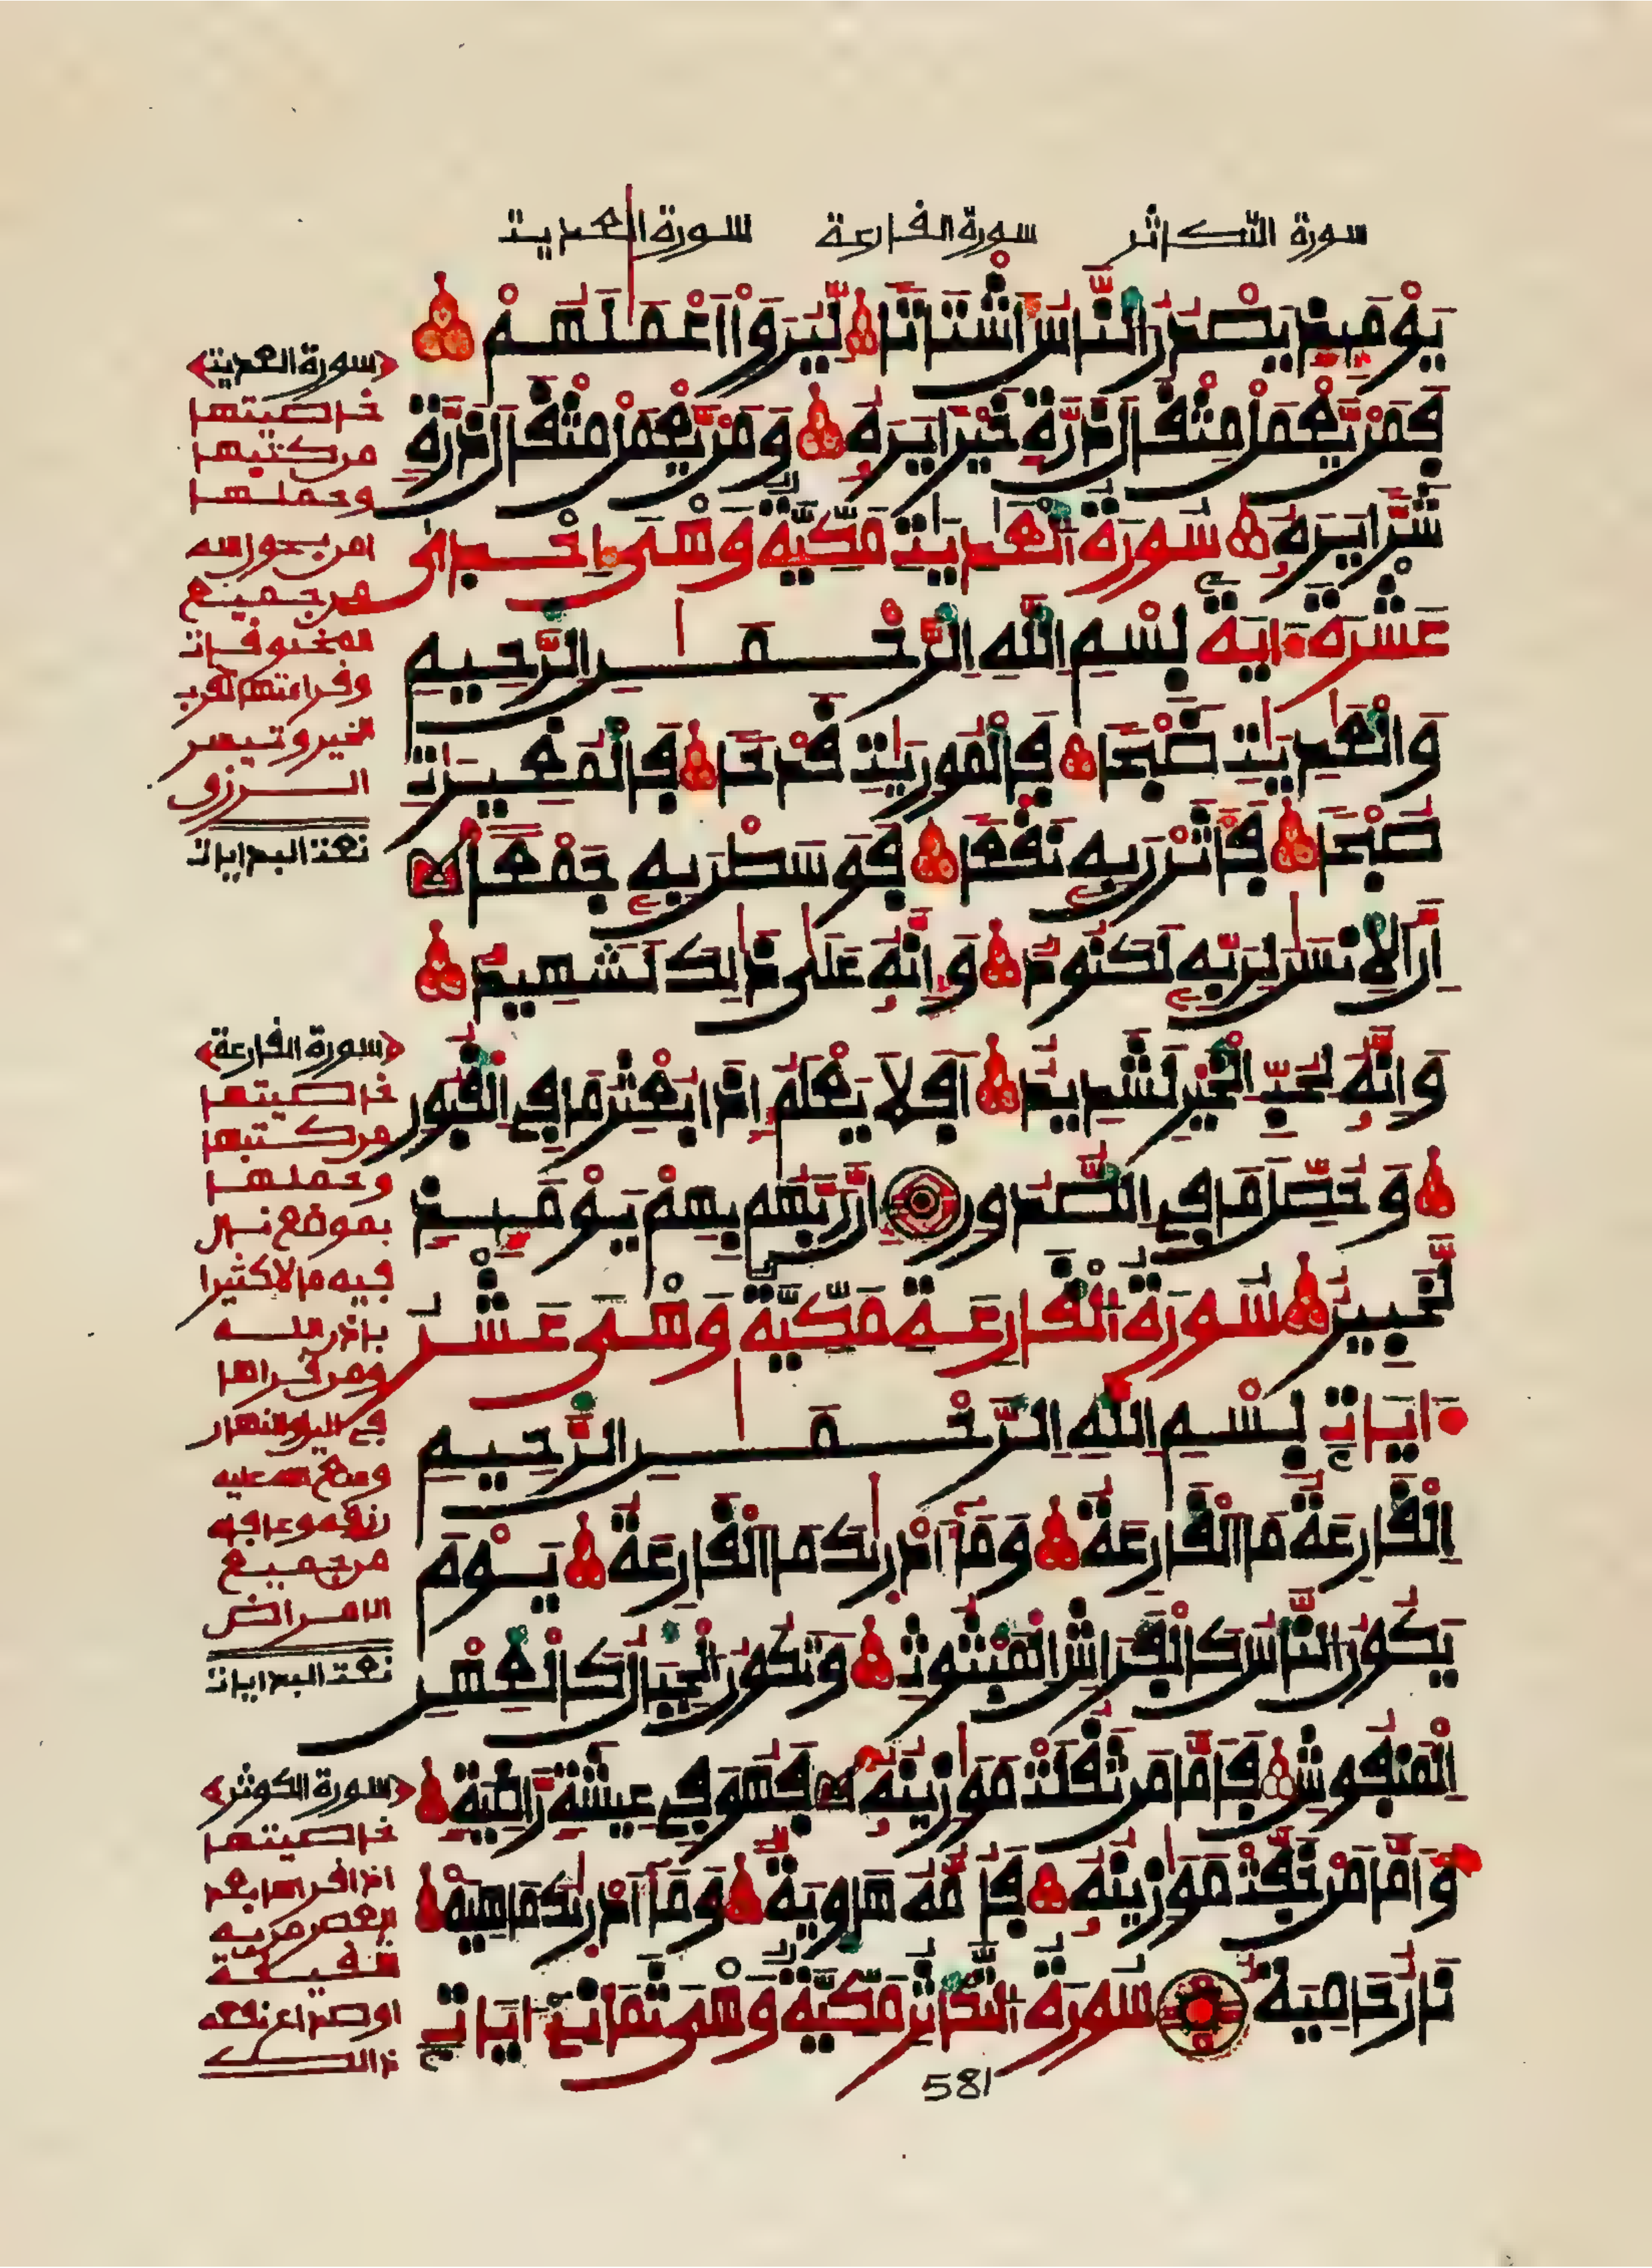 سورة التكاثر سورة القارعة سورة العديت
يَوْمَئِذٍ يَصْدُرُ النَّاسُ أَشْتَاتًا لِّيُرَوْا أَعْمَٰلَهُمْ
فَمَنْ يَّعْمَلْ مِثْقَالَ ذَرَّةٍ خَيْرًا يَرَهُ وَمَنْ يَّعْمَلْ مِثْقَالَ ذَرَّةٍ
شَرًّا يَرَهُ سُورَةُ الْعَٰدِيَٰتِ مَكِّيَّةٌ وَهْىَ إِحْدَىٰ
عَشْرَةَ ءَايَةً بِسْمِ اللَّهِ الرَّحْمَٰنِ الرَّحِيمِ
وَالْعَٰدِيَٰتِ ضَبْحًا فَالْمُورِيَٰتِ قَدْحًا فَالْمُغِيرَٰتِ
صُبْحًا فَأَثَرْنَ بِهِ نَقْعًا فَوَسَطْنَ بِهِ جَمْعًا
إِنَّ الْإِنسَٰنَ لِرَبِّهِ لَكَنُودٌ وَإِنَّهُ عَلَىٰ ذَٰلِكَ لَشَهِيدٌ
وَإِنَّهُ لِحُبِّ الْخَيْرِ لَشَدِيدٌ أَفَلَا يَعْلَمُ إِذَا بُعْثِرَ مَا فِي الْقُبُورِ
وَحُصِّلَ مَا فِي الصُّدُورِ إِنَّ رَبَّهُم بِهِمْ يَوْمَئِذٍ
لَّخَبِيرٌ سُورَةُ الْقَارِعَةِ مَكِّيَّةٌ وَهْىَ عَشْرُ
ءَايَاتٍ بِسْمِ اللَّهِ الرَّحْمَٰنِ الرَّحِيمِ
الْقَارِعَةُ مَا الْقَارِعَةُ وَمَا أَدْرَىٰكَ مَا الْقَارِعَةُ يَوْمَ
يَكُونُ النَّاسُ كَالْفَرَاشِ الْمَبْثُوثِ وَتَكُونُ الْجِبَالُ كَالْعِهْنِ
الْمَنفُوشِ فَأَمَّا مَن ثَقُلَتْ مَوَٰزِينُهُ فَهُوَ فِي عِيشَةٍ رَّاضِيَةٍ
وَأَمَّا مَنْ خَفَّتْ مَوَٰزِينُهُ فَأُمُّهُ هَاوِيَةٌ وَمَا أَدْرَىٰكَ مَا هِيَهْ
نَارٌ حَامِيَةٌ سُورَةُ التَّكَاثُرِ مَكِّيَّةٌ وَهْىَ ثَمَانِي ءَايَاتٍ
581
سورة العديت
خاصيتها
من كتبها
وحملها
امن بحول الله
من جميع
المخوفات
وقراءتها تقرب
الخير وتيسر
الرزق
تمت البدايات
سورة القارعة
خاصيتها
من كتبها
وحملها
بموضع نال
فيه مالا كثيرا
باذن الله
ومن قراها
في الليل والنهار
من جميع
الامراض
تمت البدايات
سورة الكوثر
خاصيتها
اذا قراها بعد
العصر من به
شقيقة
او صداع نفعه
ذالك